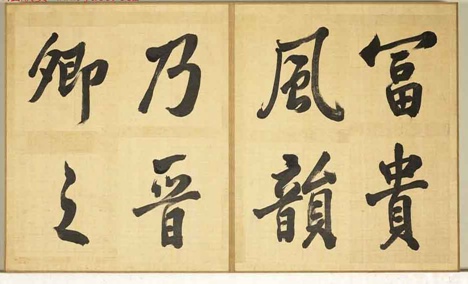 富貴
風韻
乃晉
卿之